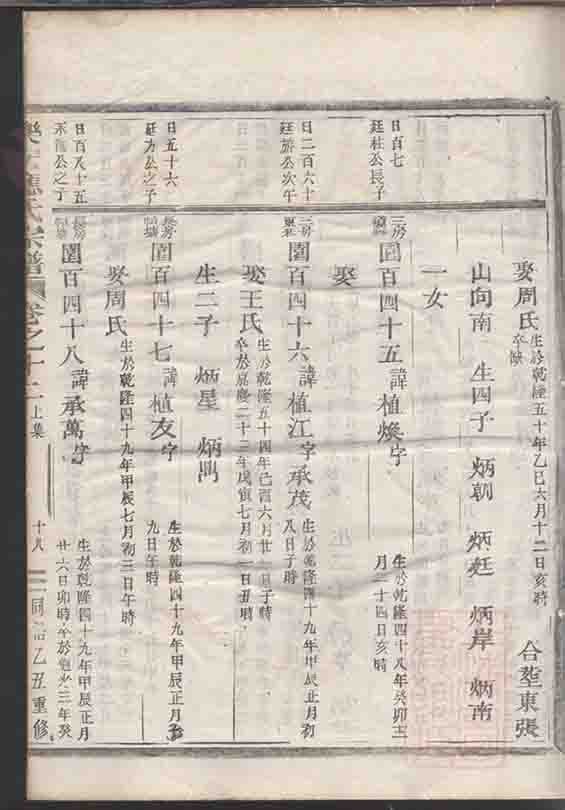 娶周氏 生於乾隆五十年乙巳六月十二日亥時 卒缺 合塟東張
山向南 生四子 炳朝 炳廷 炳岸 炳南
一女
日百七
廷柱公長子
三房
圓百四十五諱植煥字 生於乾隆四十八年癸卯三
月二十四日亥時
娶
日二百六十
廷 公次子
三房
圓百四十六諱植江字承茂 生於乾隆四十九年甲辰正月初
八日子時
娶王氏 生於乾隆五十四年己酉六月廿 日子時
卒於嘉慶二十三年戊寅七月初一日丑時
生二子 炳星 炳
日五十六
廷 公之子
長房
圓百四十七諱植友字 生於乾隆四十九年甲辰正月初
九日午時
娶周氏 生於乾隆四十九年甲辰七月初三日午時
日百八十五
公之子
長房
圓百四十八諱承萬字 生於乾隆四十九年甲辰正月
廿六日卯時卒於 三年癸
氏宗譜 卷之十二 上集 十八 同治乙丑重修